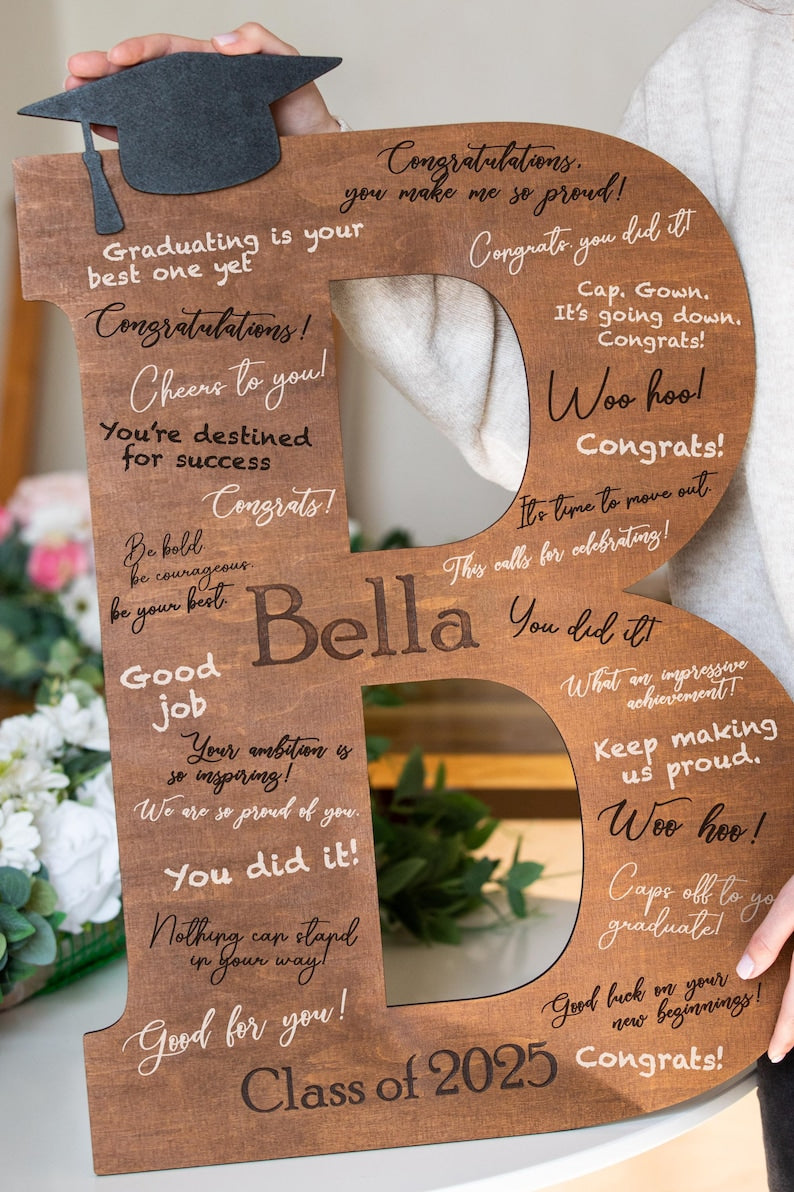 Congratulations,
you make me so proud!
Graduating is your
best one yet
Congrats, you did it!
Cap. Gown.
It's going down.
Congrats!
Congratulations!
Cheers to you!
Woo hoo!
You're destined
for success
Congrats!
Congrats!
It's time to move out.
Be bold
be courageous.
be your best.
This calls for celebrating!
Bella
You did it!
Good
job
What an impressive
achievement!
Your ambition is
so inspiring!
Keep making
us proud.
We are so proud of you.
Woo hoo!
You did it!
Caps off to yo
graduate!
Nothing can stand
in your way!
Good luck on your
new beginnings!
Good for you!
Class of 2025
Congrats!